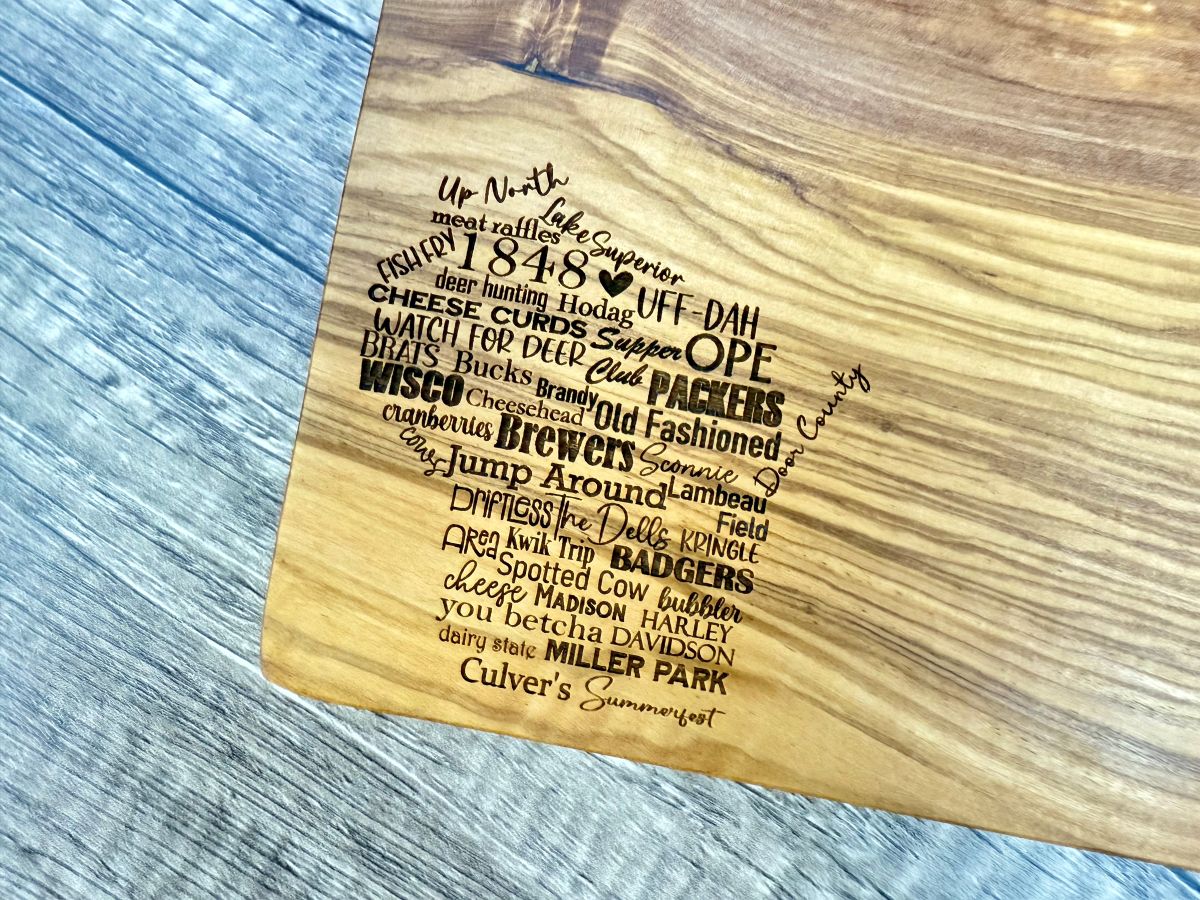 Up North
meat raffles Lake Superior
FISH FRY 1848
deer hunting Hodag UFF-DAH
CHEESE CURDS Supper OPE
WATCH FOR DEER Club
BRATS Bucks Brandy PACKERS
WISCO Cheesehead Old Fashioned
cranberries Brewers Sconnie Door County
cows Jump Around Lambeau
Driftless The Dells Field
Area Kwik Trip KRINGLE
Spotted Cow BADGERS
cheese MADISON bubbler
you betcha HARLEY
dairy state DAVIDSON
MILLER PARK
Culver's Summerfest